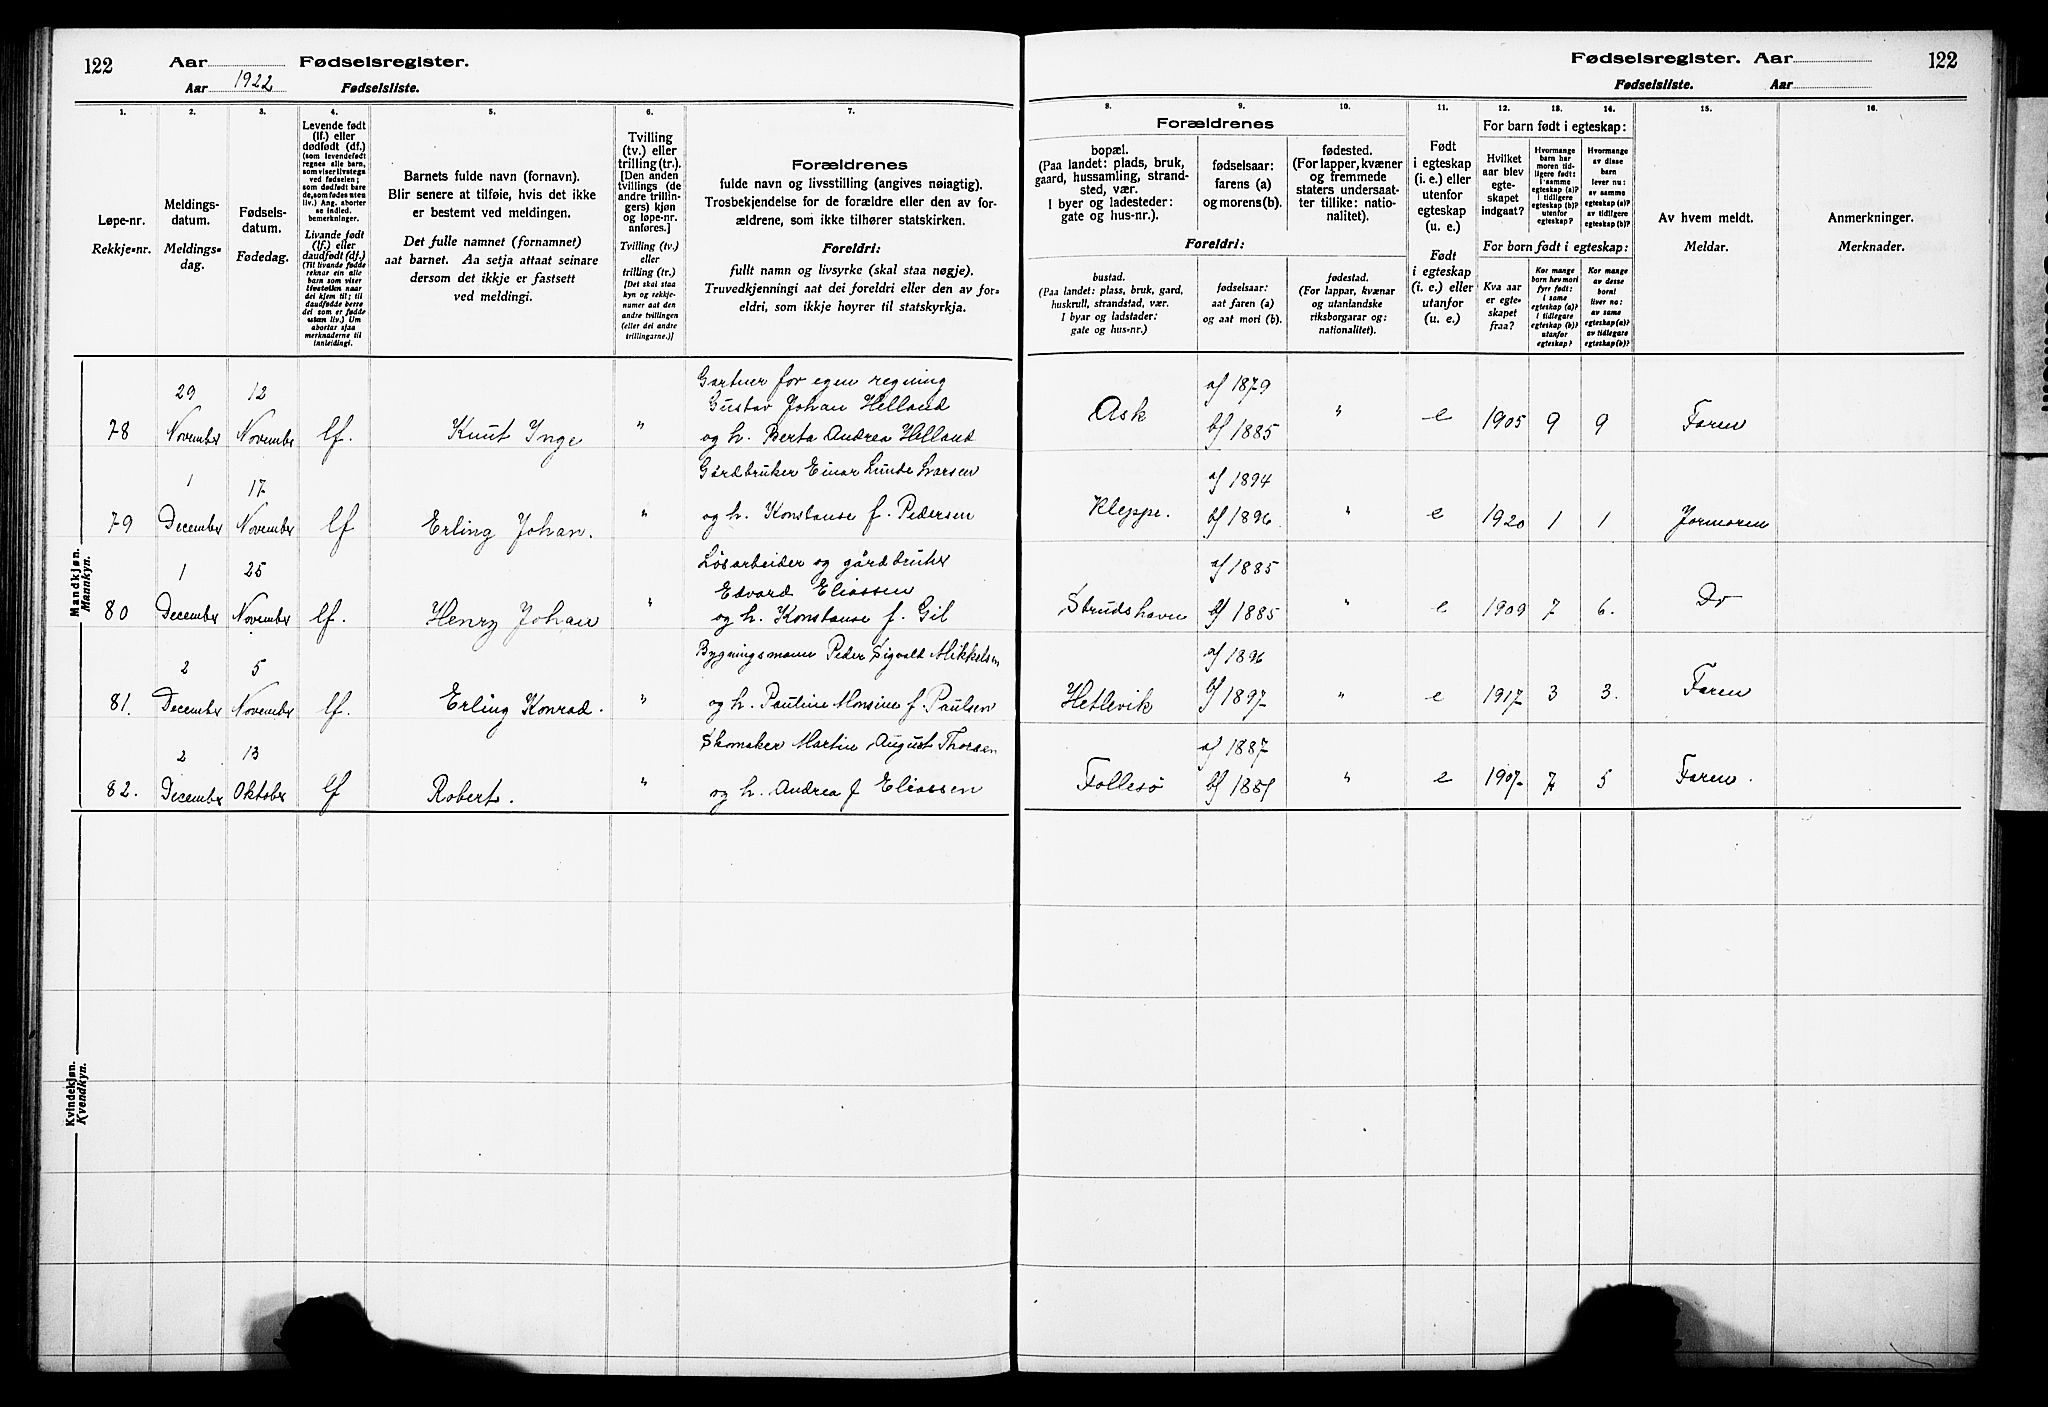 122
Aar
Fødselsregister.
Aar 1922
Fødselsliste.
1.
2.
3.
4.
5.
6.
7.
Løpe-nr.
Rekkje-nr.
Meldings-
datum.
Meldings-
dag.
Fødsels-
datum.
Fødedag.
Levende født
(lf.) eller
dødfødt (df.)
(som levendefødt
regnes alle barn,
som viser livstegn
ved fødselen;
som dødfødt bare
de, som fødes uten
liv.) Ang. aborter
se indled.
bemerkninger.
Livande født
(lf.) eller
daudfødt (df.)
(Til livande fødde
reknar ein alle
barn som viser
livsteikn naar
dei kjem til; til
daudfødde berre
dei som er fødde
utan liv.) Um
abortar sjaa
merknaderne til
innleidingi.
Barnets fulde navn (fornavn).
Blir senere at tilføie, hvis det ikke
er bestemt ved meldingen.
Det fulle namnet (fornamnet)
aat barnet. Aa setja attaat seinare
dersom det ikkje er fastsett
ved meldingi.
Tvilling
(tv.) eller
trilling (tr.).
[Den anden
tvillings (de
andre trillin-
gers) kjøn
og løpe-nr.
anføres.]
Tvilling (tv.)
eller
trilling (tr.)
[Det skal staa
kyn og rekkje-
numer aat den
andre tvillingen
(eller dei andre
trillingarne.)]
Forældrenes
fulde navn og livsstilling (angives nøiagtig).
Trosbekjendelse for de forældre eller den av for-
ældrene, som ikke tilhører statskirken.
Foreldri:
fullt namn og livsyrke (skal staa nøgje).
Truvedkjenningi aat dei foreldri eller den av for-
eldri, som ikkje høyrer til statskyrkja.
Mandkjøn.
Mannkyn.
78
29
November
12
November
lf.
Knut Inge
"
Gartner for egen regning
Gustav Johan Helland
og h. Berta Andrea Helland
79
1
December
17
November
lf
Erling Johan.
"
Gårdbruker Einar Lunde Larsen
og h. Konstanse f. Pedersen
80
1
December
25
November
lf.
Henry Johan
"
Løsarbeider og gårdbruker
Edvard Eliassen
og h. Konstanse f. Gil
81.
2
December
5
November
lf.
Erling Konrad.
"
Bygningsmann Peder Sigvald Mikkelsen
og h. Pauline Monsine f. Paulsen
82.
2
December
13
Oktober
lf
Robert.
"
Skomaker Martin August Thorsen
og h. Andrea f Eliassen
Kvindekjøn.
Kvendkyn.
Fødselsregister. Aar
122
Fødselsliste.
Aar
8.
9.
10.
11.
12.
13.
14.
15.
16.
Forældrenes
bopæl.
(Paa landet: plads, bruk,
gaard, hussamling, strand-
sted, vær.
I byer og ladesteder:
gate og hus-nr.).
fødselsaar:
farens (a)
og morens (b).
fødested.
(For lapper, kvæner
og fremmede
staters undersaat-
ter tillike: natio-
nalitet).
Foreldri:
bustad.
(Paa landet: plass, bruk, gard,
huskrull, strandstad, vær.
I byar og ladstader:
gate og hus-nr.)
fødselsaar:
aat faren (a)
og aat mori (b).
fødestad.
(For lappar, kvænar
og utanlandske
riksborgarar og:
nationalitet).
Født
i egteskap
(i. e.) eller
utenfor
egteskap
(u. e.)
Født
i egteskap
(i. e.) eller
utanfor
(u. e.)
For barn født i egteskap:
Hvilket
aar blev
egte-
skapet
indgaat?
Hvormange
barn har
moren tid-
ligere født:
i samme
egteskap (a)?
i tidligere
egteskap (b)?
utenfor
egteskap?
Hvormange
av disse
barn
lever nu:
av samme
egteskap (a)?
av tidligere
egteskap (b)?
For born født i egteskap:
Kva aar
er egte-
skapet
fraa?
Kor mange
born hev mori
fyrr født:
i same
egteskap (a)?
i tidlegare
egteskap (b)?
utanfor
egteskap?
Kor mange
av desse
borni
liver no:
av same
egteskap (a)?
av tidlegare
egteskap (b)?
Av hvem meldt.
Meldar.
Anmerkninger.
Merknader.
Ask
af 1879
bf 1885
"
e
1905
9
9
Faren
Kleppe.
af 1894
bf 1896
"
e
1920
1
1
Jormoren
Strudshavn
af 1885
bf 1885
"
e
1909
7
6.
Do
Hetlevik
af 1896
bf 1897
"
e
1917
3
3.
Faren
Follesø
af 1887
"
e
1907.
7
5
Faren.